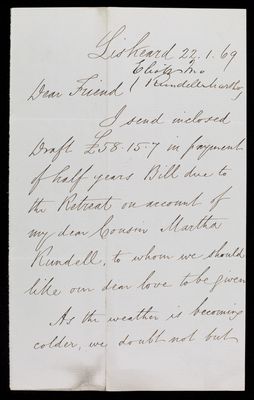 Liskeard 22.1.69
Dear Friend
I send inclosed
Draft £58.15.7 in payment
of half years Bill due to
the Retreat on account of
my dear Cousin Martha
Rundell, to whom we should
like our dear love to be given
As the weather is becoming
colder, we doubt not but